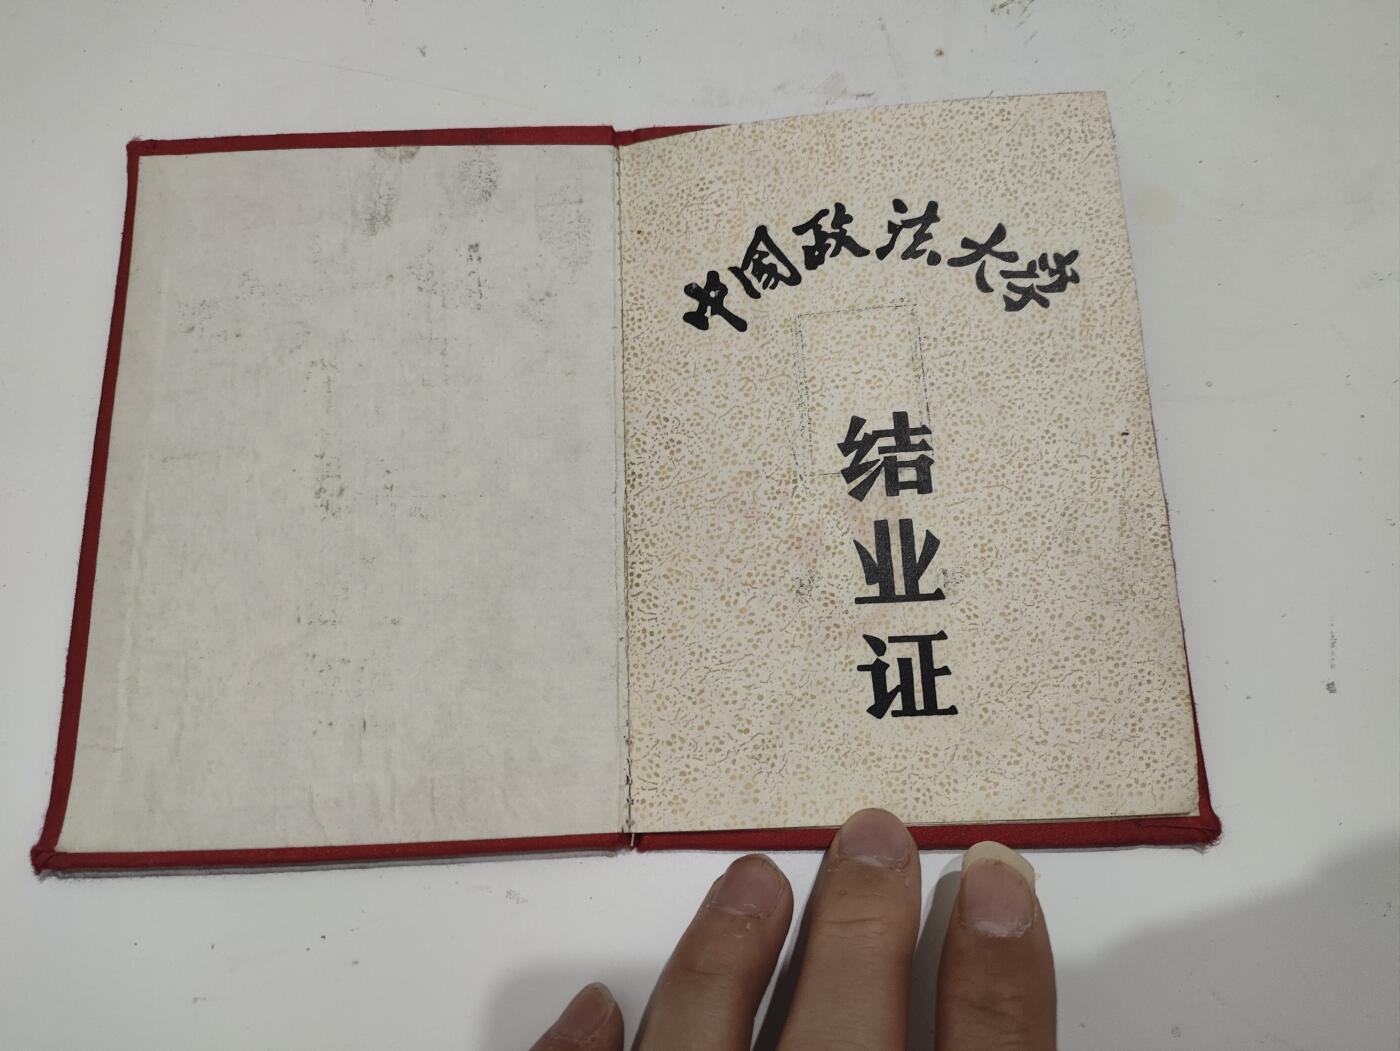 中国政法大学
结
业
证